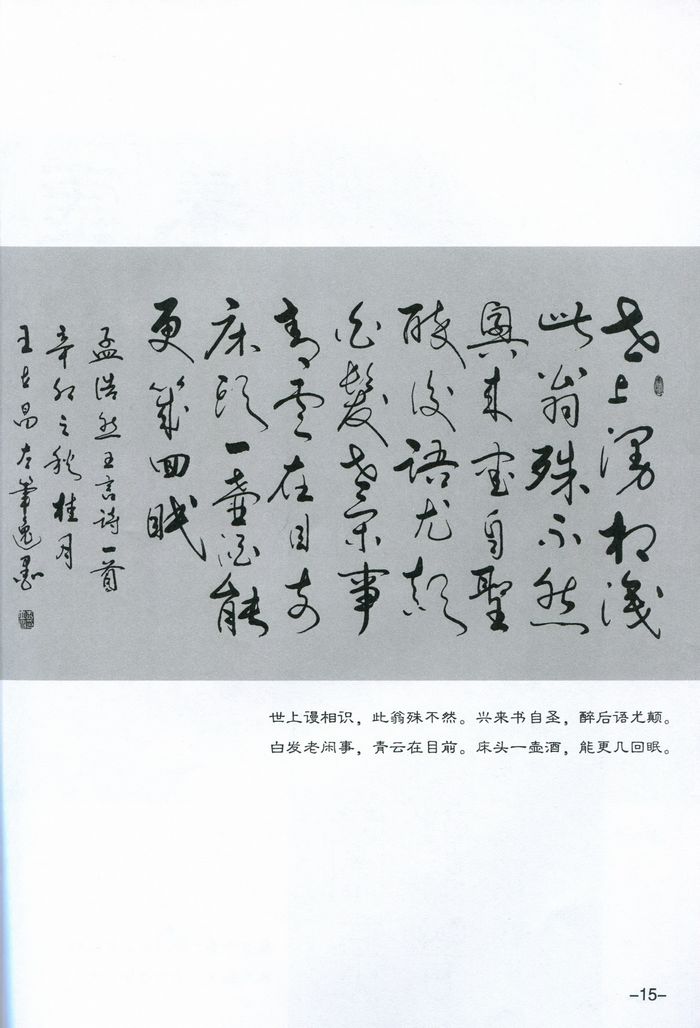 世上漫相識
此翁殊不然
興来書自聖
醉後語尤顛
白髮老閑事
青雲在目前
床頭一壺酒能
更幾回眠
孟浩然五言詩一首
辛卯之秋桂月
王士昌左筆逸墨
世上谩相识，此翁殊不然。兴来书自圣，醉后语尤颠。
白发老闲事，青云在目前。床头一壶酒，能更几回眠。
-15-